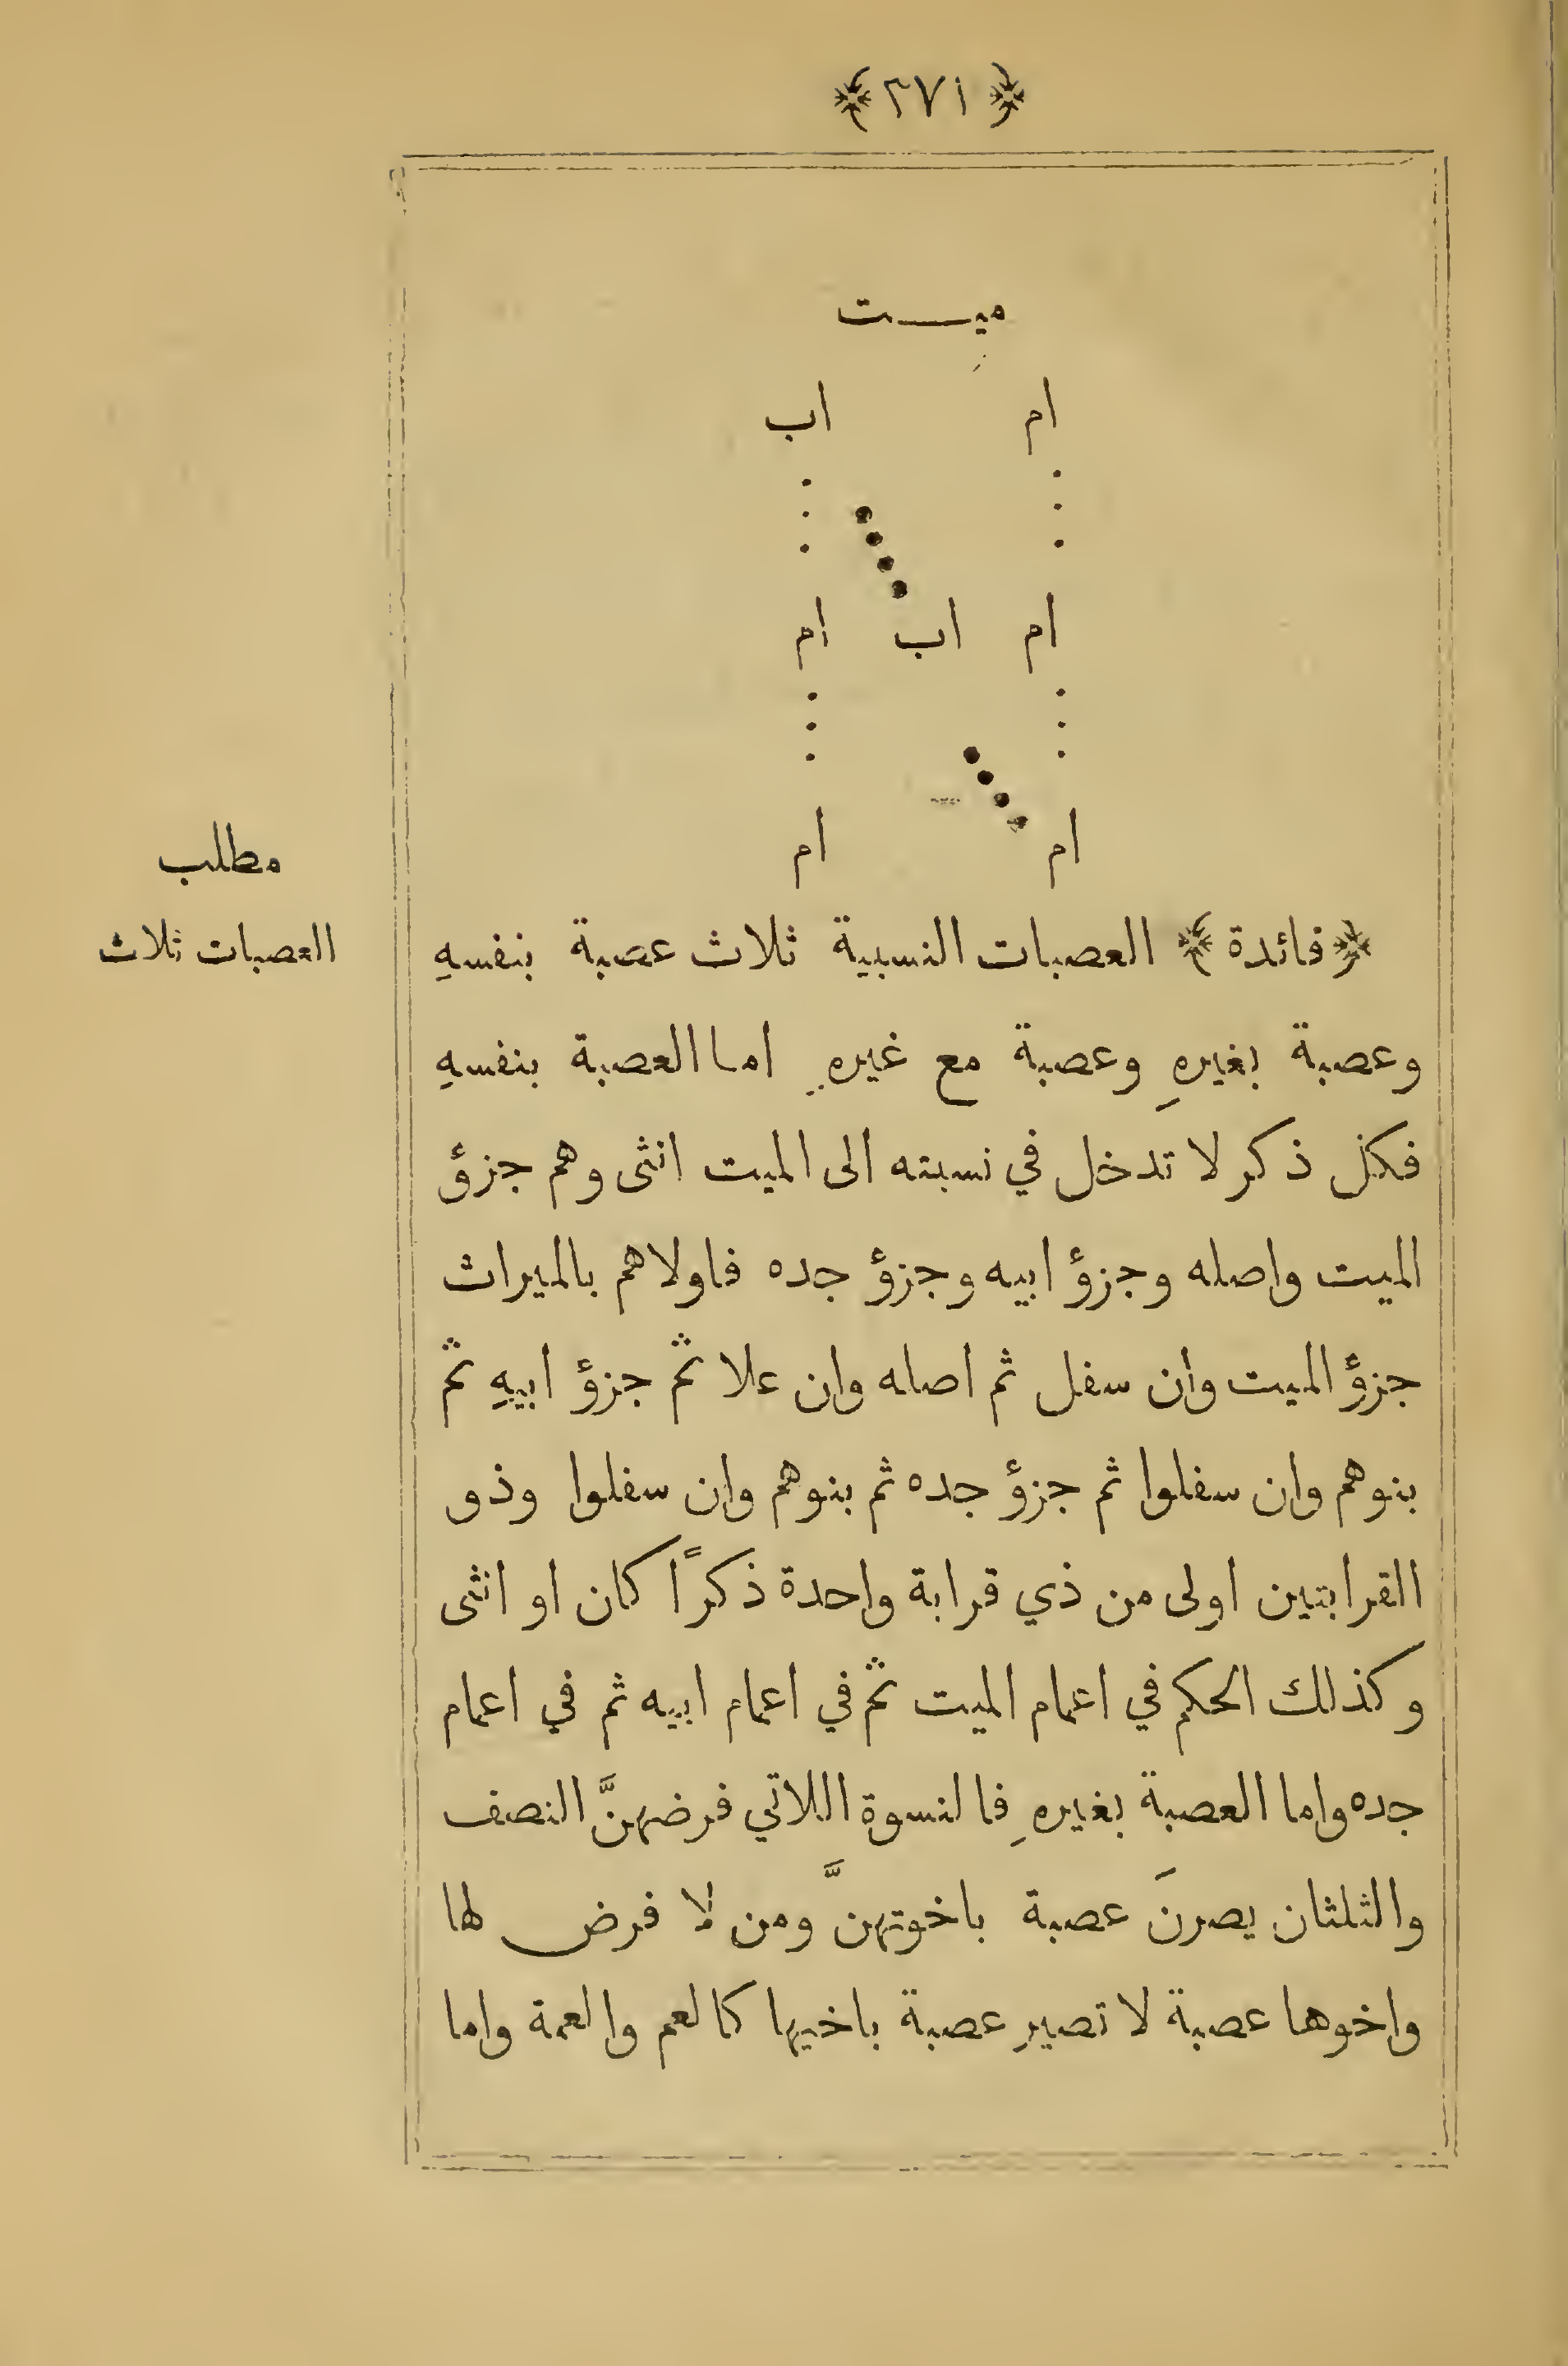 ﴿ ٢٧١ ﴾
ميــــت
ام اب
ام اب ام
ام ام
مطلب
العصبات ثلاث
﴿ فائدة ﴾ العصبات النسبية ثلاث عصبة بنفسهِ
وعصبة بغيرهِ وعصبة مع غيرهِ اما العصبة بنفسهِ
فكل ذكر لا تدخل في نسبته الى الميت انثى وهم جزؤ
الميت واصله وجزؤ ابيه وجزؤ جده فاولاهم بالميراث
جزؤ الميت وان سفل ثم اصله وان علا ثم جزؤ ابيهِ ثم
بنوهم وان سفلوا ثم جزؤ جده ثم بنوهم وان سفلوا وذو
القرابتين اولى من ذي قرابة واحدة ذكراً كان او انثى
وكذلك الحكم في اعمام الميت ثم في اعمام ابيه ثم في اعمام
جده واما العصبة بغيرهِ فالنسوة اللاتي فرضهنَّ النصف
والثلثان يصرنَ عصبة باخوتهنَّ ومن لا فرض لها
واخوها عصبة لا تصير عصبة باخيها كالعم والعمة واما